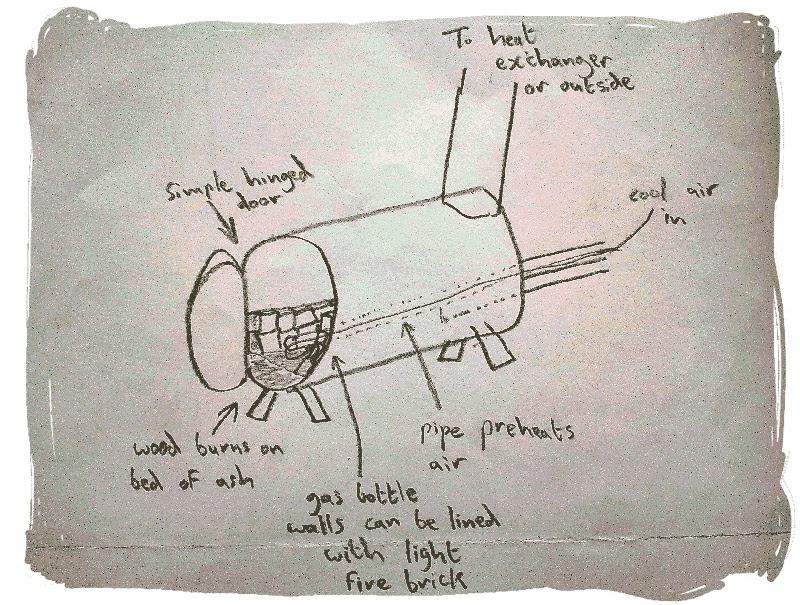 To heat
exchanger
or outside
simple hinged
door
cool air
in
wood burns on
bed of ash
pipe preheats
air
gas bottle
walls can be lined
with light
fire brick